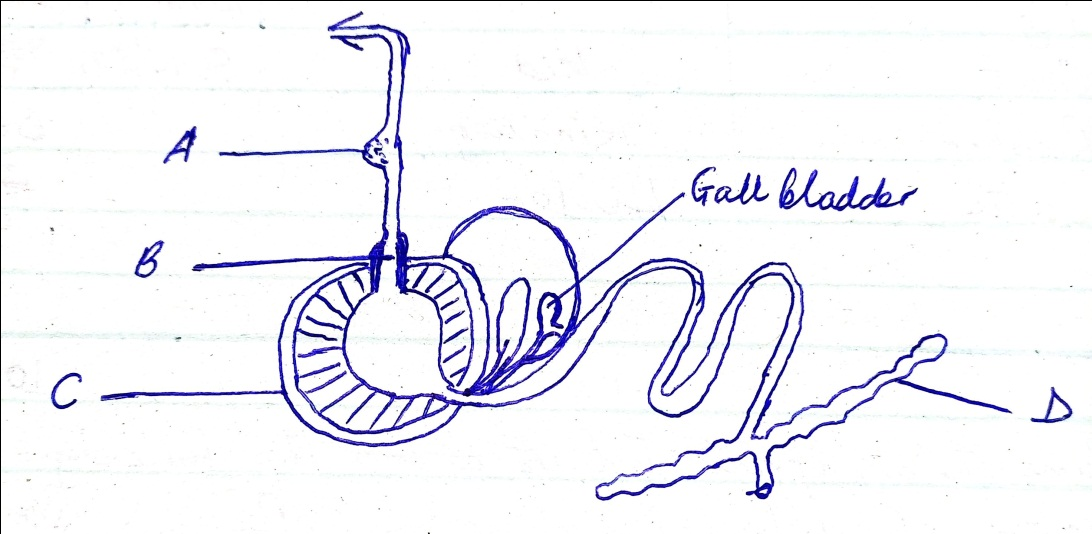 A
Gall bladder
B
C
D